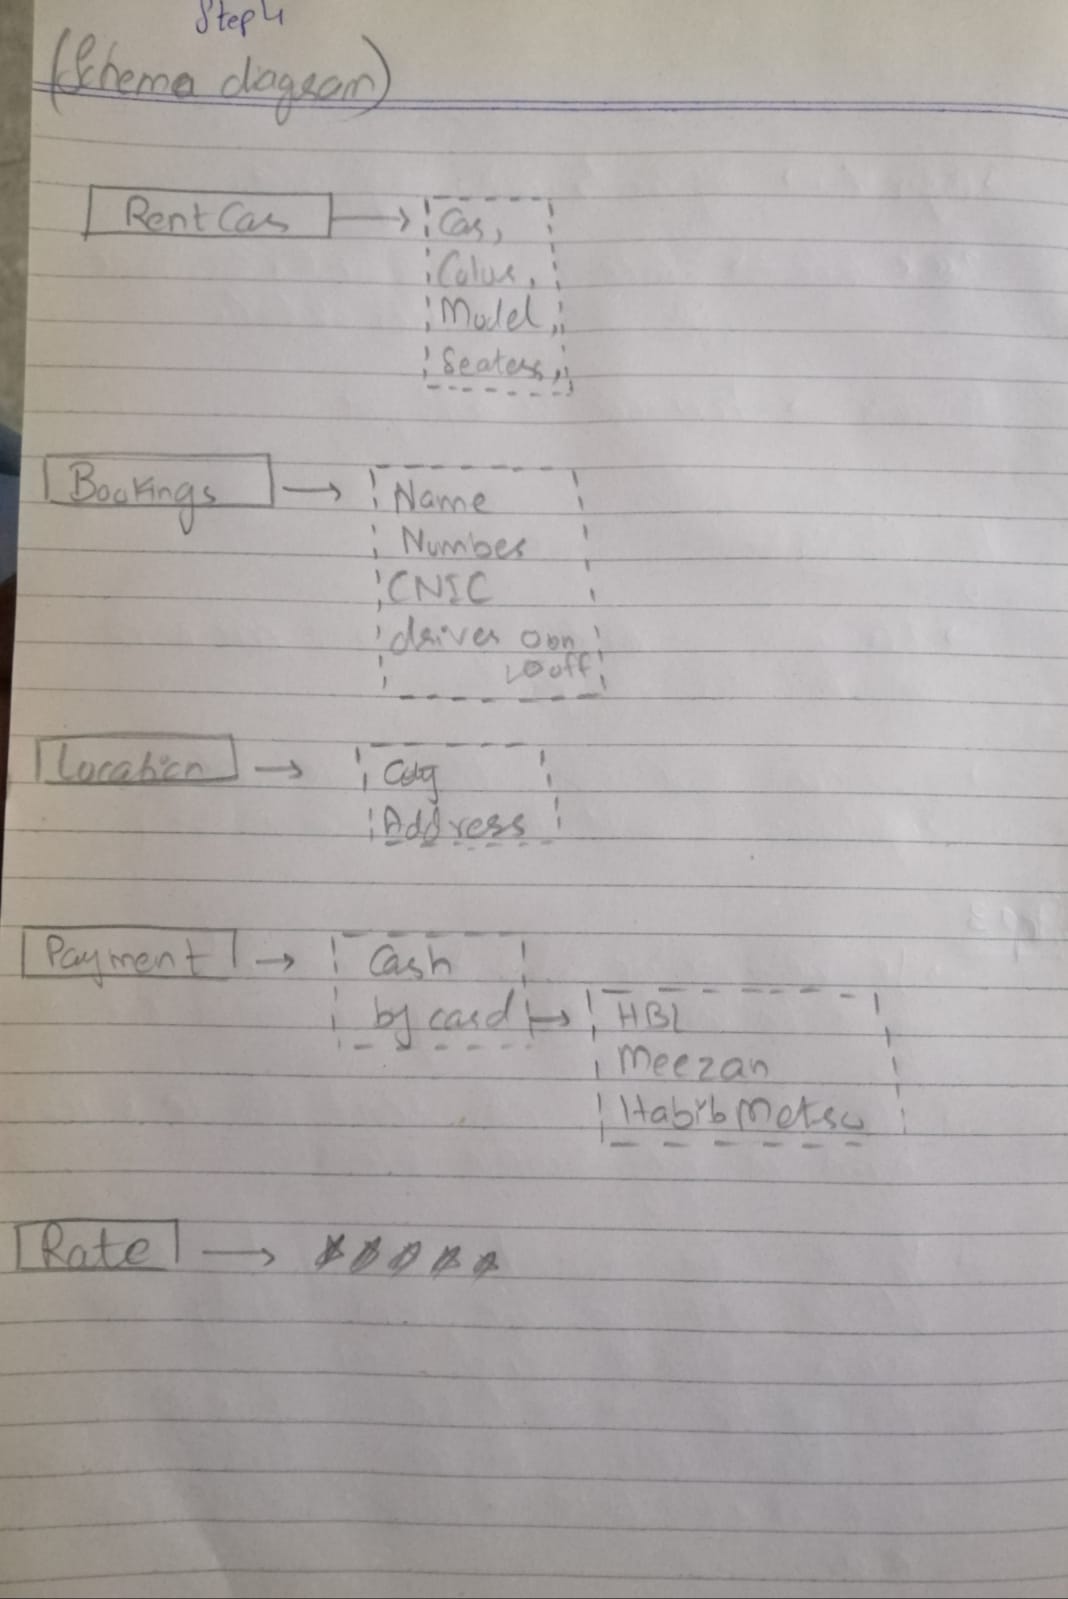 Step 4
(Schema diagram)
Rent Car
Car,
Colur,
Model,
Seaters,
Bookings
Name
Number
CNIC
driver on
off
Location
City
Address
Payment
Cash
by card
HBL
Meezan
Habib Metro
Rate